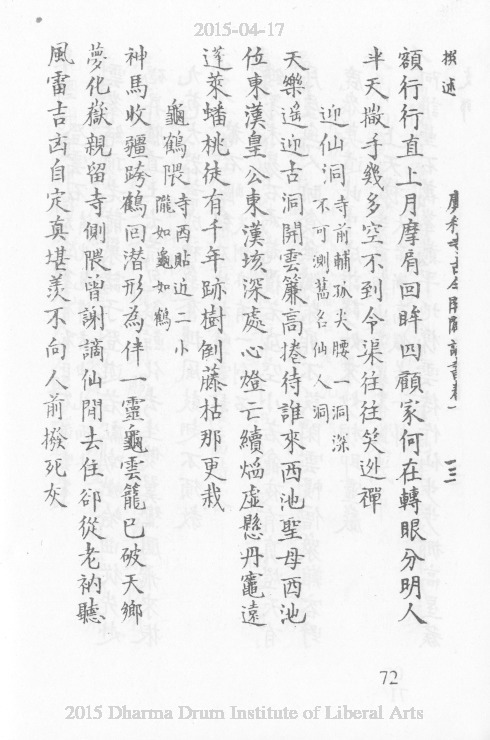 2015-04-17
撰述
一三
額行行直上月摩肩回眸四顧家何在轉眼分明人
半天撒手幾多空不到令渠往往笑迯禪
迎仙洞寺前輔弧尖腰一洞深
不可測舊名仙人洞
天樂遙迎古洞開雲簾高捲待誰來西池聖母西池
位東漢皇公東漢垓深處心燈亡續焰虛懸丹竈遠
蓬萊蟠桃徒有千年跡樹倒藤枯那更栽
龜鶴隈寺西貼近二小
隴如龜如鶴
神馬收疆跨鶴回潛形為伴一靈龜雲籠已破天鄉
夢化嶽親留寺側隈曾謝謫仙閒去住卻從老衲聽
風雷吉凶自定真堪羨不向人前撥死灰
72
2015 Dharma Drum Institute of Liberal Arts